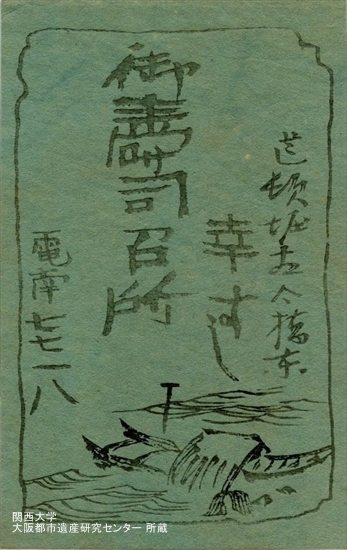 道頓堀太左衛門橋東
幸すし
御壽司召所
電南七七一八
関西大学
大阪都市遺産研究センター 所蔵